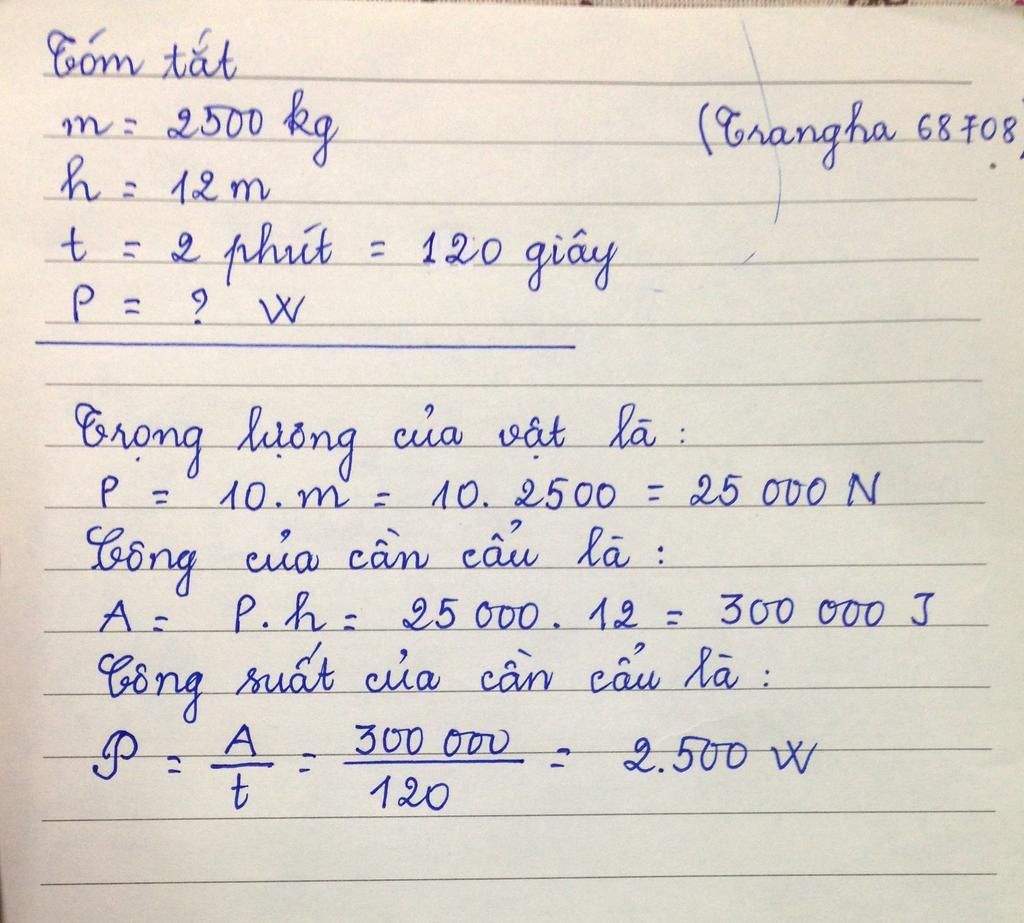 Tóm tắt
m = 2500 kg
(Trangha 68708)
h = 12 m
t = 2 phút = 120 giây
P = ? W
Trọng lượng của vật là :
P = 10. m = 10. 2500 = 25 000 N
Công của cần cẩu là :
A = P. h = 25 000. 12 = 300 000 J
Công suất của cần cẩu là :
𝒫 = A/t = 300 000/120 = 2.500 W